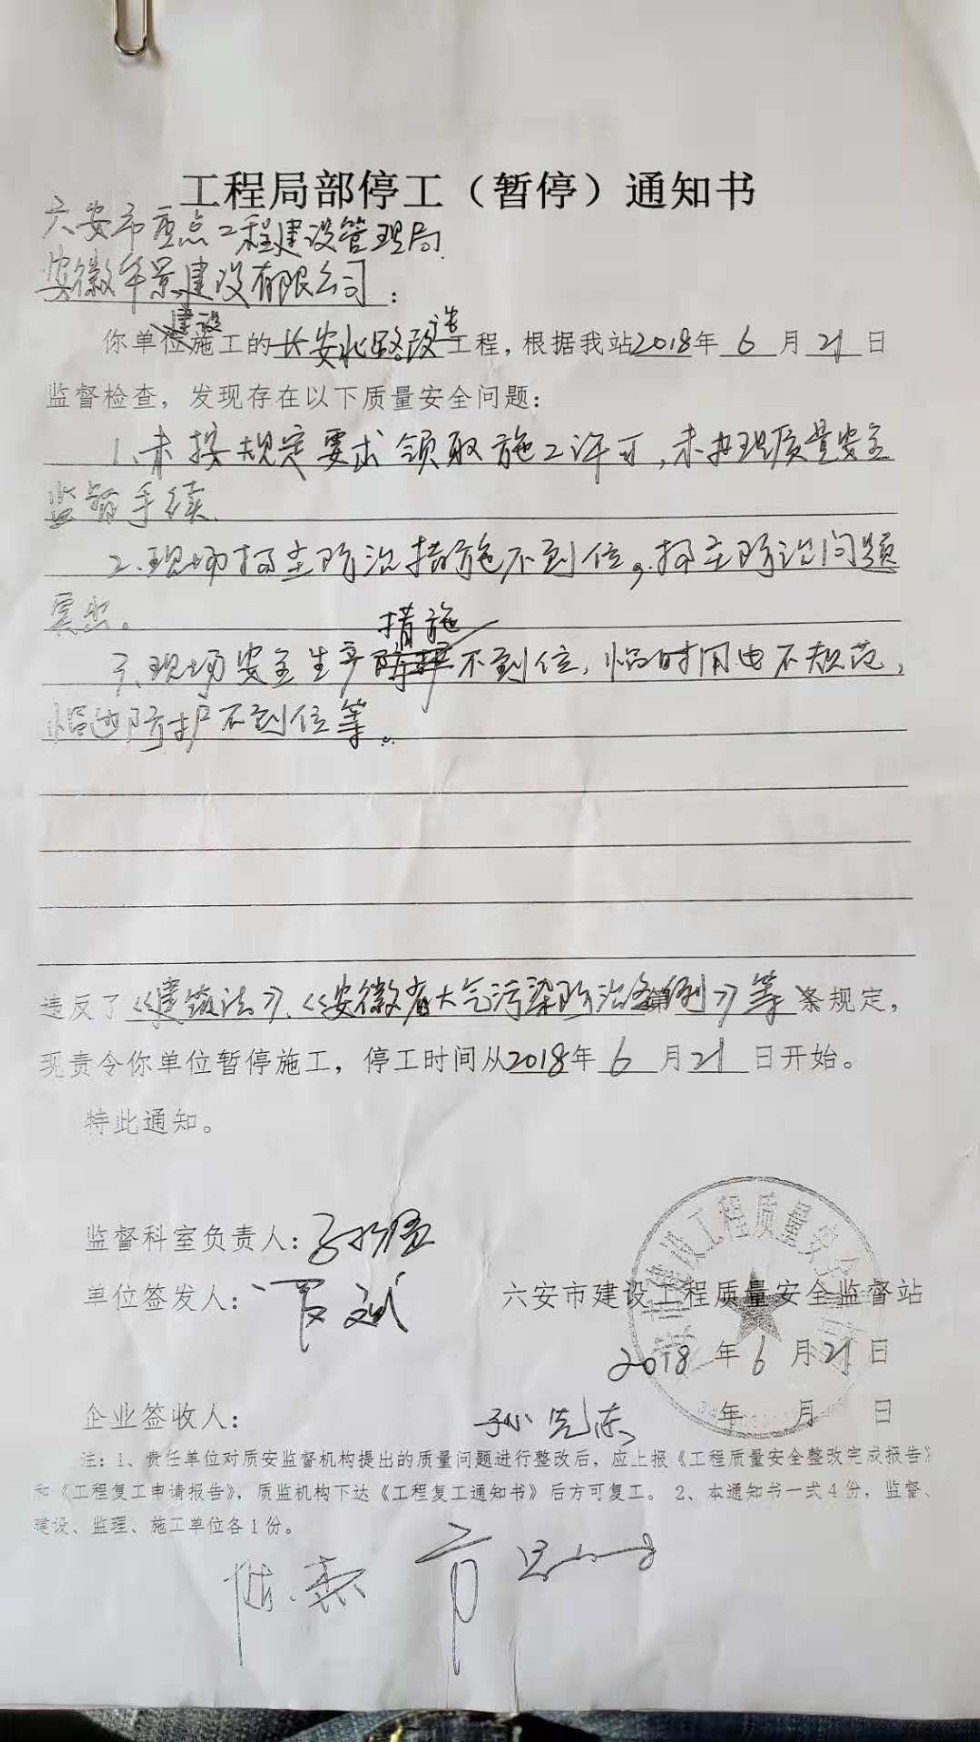 工程局部停工（暂停）通知书
六安市重点工程建设管理局
安徽华景建设有限公司：
建设 造
你单位施工的长安北路改工程，根据我站2018年6月21日
监督检查，发现存在以下质量安全问题：
1、未按规定要求领取施工许可，未办理质量安全
监督手续.
2.现场扬尘防治措施不到位，扬尘防治问题
突出。
措施
3、现场安全生产不到位，临时用电不规范，
临边防护不到位等。
违反了《建筑法》、《安徽省大气污染防治条例》等条规定，
现责令你单位暂停施工，停工时间从2018年6月21日开始。
特此通知。
监督科室负责人：
单位签发人：
六安市建设工程质量安全监督站
2018年6月21日
企业签收人： 孙先东 年 月 日
注：1、责任单位对质安监督机构提出的质量问题进行整改后，应上报《工程质量安全整改完成报告》
和《工程复工申请报告》，质监机构下达《工程复工通知书》后方可复工。 2、本通知书一式4份，监督、
建设、监理、施工单位各1份。